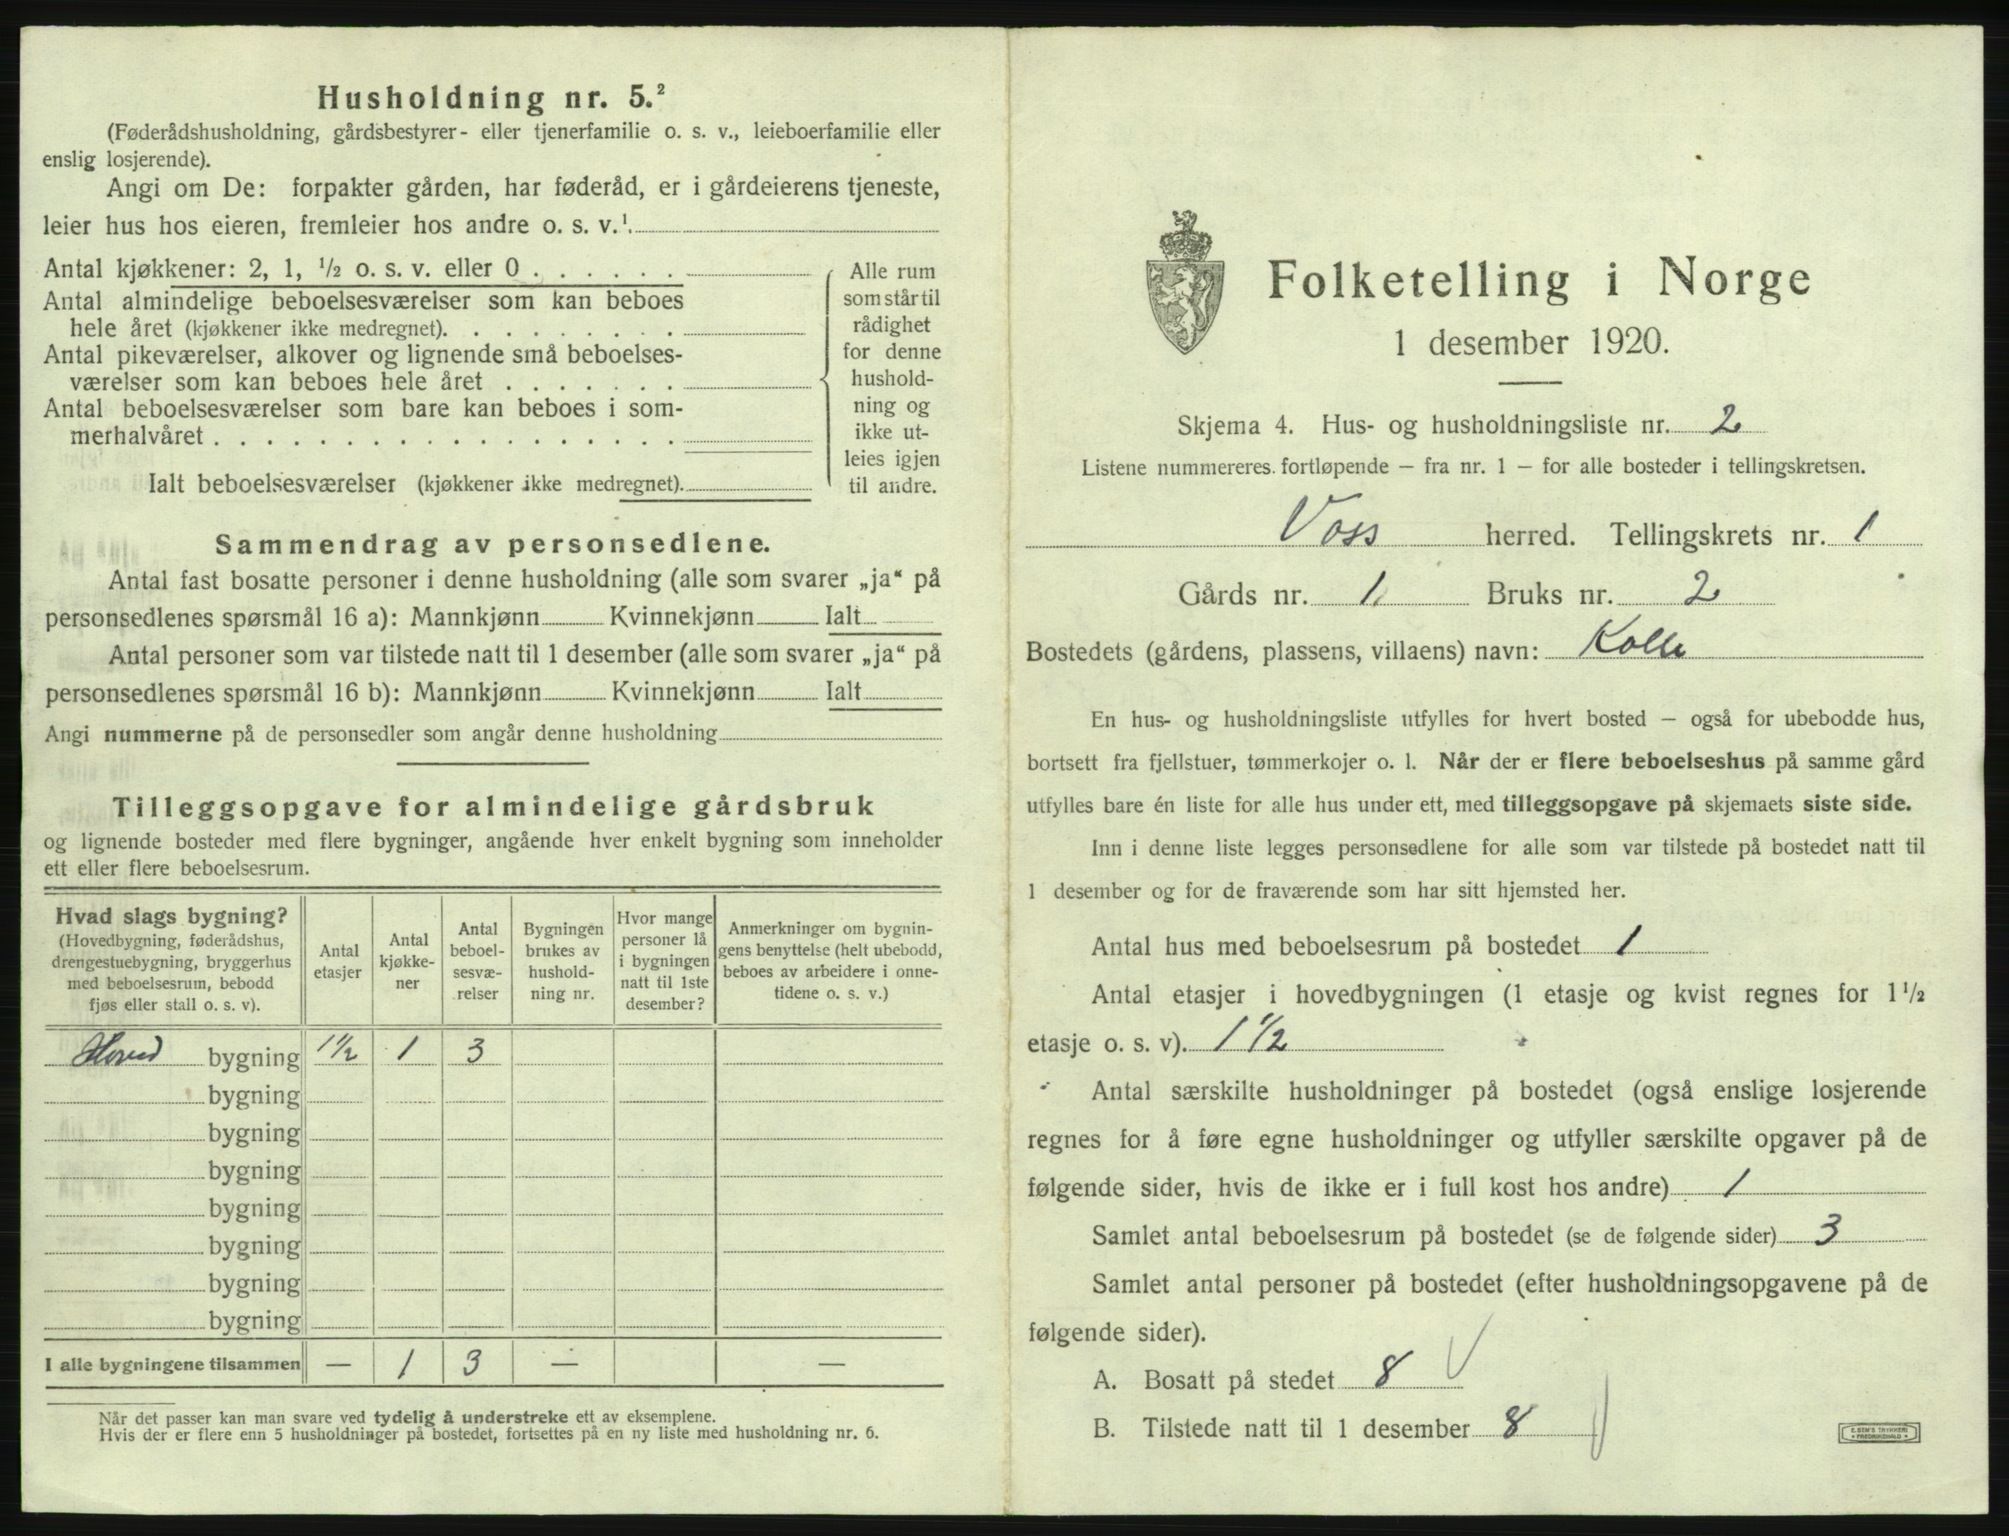 Husholdning nr. 5.²
(Føderådshusholdning, gårdsbestyrer- eller tjenerfamilie o. s. v., leieboerfamilie eller
enslig losjerende).
Angi om De: forpakter gården, har føderåd, er i gårdeierens tjeneste,
leier hus hos eieren, fremleier hos andre o. s. v.¹.
Antal kjøkkener: 2, 1, ½ o. s. v. eller 0 . . . . . .
Antal almindelige beboelsesværelser som kan beboes
hele året (kjøkkener ikke medregnet). . . . . . . . .
Antal pikeværelser, alkover og lignende små beboelses-
værelser som kan beboes hele året . . . . . . .
Antal beboelsesværelser som bare kan beboes i som-
merhalvåret . . . . . . . . . . . . . . . . . .
Ialt beboelsesværelser (kjøkkener ikke medregnet).
Alle rum
som står til
rådighet
for denne
hushold-
ning og
ikke ut-
leies igjen
til andre.
Sammendrag av personsedlene.
Antal fast bosatte personer i denne husholdning (alle som svarer „ja“ på
personsedlenes spørsmål 16 a): Mannkjønn Kvinnekjønn Ialt
Antal personer som var tilstede natt til 1 desember (alle som svarer „ja“ på
personsedlenes spørsmål 16 b): Mannkjønn Kvinnekjønn Ialt
Angi nummerne på de personsedler som angår denne husholdning
Tilleggsopgave for almindelige gårdsbruk
og lignende bosteder med flere bygninger, angående hver enkelt bygning som inneholder
ett eller flere beboelsesrum.
Hvad slags bygning?
(Hovedbygning, føderådshus,
drengestuebygning, bryggerhus
med beboelsesrum, bebodd
fjøs eller stall o. s. v).
Antal
etasjer
Antal
kjøkke-
ner
Antal
beboel-
sesvæ-
relser
Bygningen
brukes av
hushold-
ning nr.
Hvor mange
personer lå
i bygningen
natt til 1ste
desember?
Anmerkninger om bygnin-
gens benyttelse (helt ubebodd,
beboes av arbeidere i onne-
tidene o. s. v.)
Hoved bygning 1½ 1 3
bygning
bygning
bygning
bygning
bygning
bygning
bygning
I alle bygningene tilsammen — 1 3 — —
Når det passer kan man svare ved tydelig å understreke ett av eksemplene.
Hvis der er flere enn 5 husholdninger på bostedet, fortsettes på en ny liste med husholdning nr. 6.
Folketelling i Norge
1 desember 1920.
Skjema 4. Hus- og husholdningsliste nr. 2
Listene nummereres fortløpende — fra nr. 1 — for alle bosteder i tellingskretsen.
Voss herred. Tellingskrets nr. 1
Gårds nr. 1 Bruks nr. 2
Bostedets (gårdens, plassens, villaens) navn: Kolle
En hus- og husholdningsliste utfylles for hvert bosted — også for ubebodde hus,
bortsett fra fjellstuer, tømmerkojer o. l. Når der er flere beboelseshus på samme gård
utfylles bare én liste for alle hus under ett, med tilleggsopgave på skjemaets siste side.
Inn i denne liste legges personsedlene for alle som var tilstede på bostedet natt til
1 desember og for de fraværende som har sitt hjemsted her.
Antal hus med beboelsesrum på bostedet 1
Antal etasjer i hovedbygningen (1 etasje og kvist regnes for 1½
etasje o. s. v). 1½
Antal særskilte husholdninger på bostedet (også enslige losjerende
regnes for å føre egne husholdninger og utfyller særskilte opgaver på de
følgende sider, hvis de ikke er i full kost hos andre) 1
Samlet antal beboelsesrum på bostedet (se de følgende sider) 3
Samlet antal personer på bostedet (efter husholdningsopgavene på de
følgende sider).
A. Bosatt på stedet 8
B. Tilstede natt til 1 desember 8
E. SEM'S TRYKKERI
• FREDRIKSHALD •